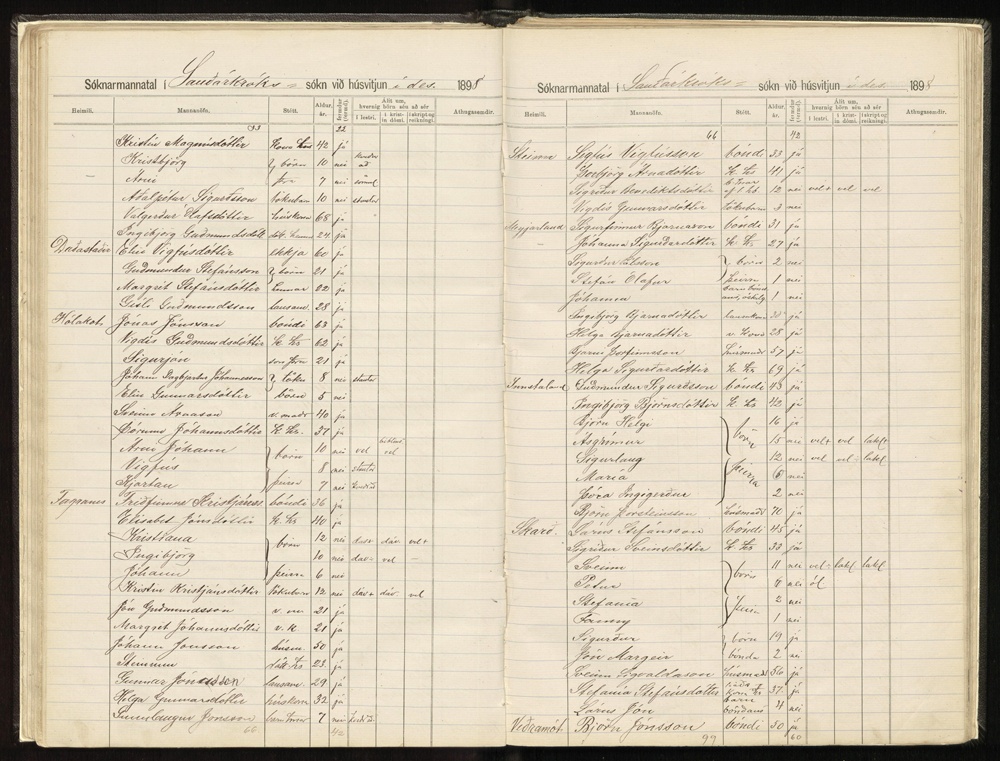 Sóknarmannatal í Sauðárkróks = sókn við húsvitjun í des. 1898
Heimili. Mannanöfn. Stétt. Aldur, ár. fermdur (vermd). Álit um, hvernig börn séu að sér Athugasemdir.
í lestri. í kristin dómi. í skript reikningi.
33 22
Kristín Magnúsdóttir 42 já
Kristbjörg börn 10 nei
Árni 7 nei
Aðalpétur Sigurðsson tökubarn 10 nei
Valgerður Ólafsdóttir húskona 68 já
Ingibjörg Guðmundsdótt 24 já
Daðastaðir Elín Vigfúsdóttir ekkja 60 já
Guðmundur Stefánsson börn 21 já
Margrét Stefánsdóttir hennar 22 já
Gísli Guðmundsson lausam 28 já
Hólakot. Jónas Jónsson bóndi 63 já
Vigdís Guðmundsdóttir k. hs 62 já
Sigurjón son þra 21 já
Jóhann Dagbjartur Jóhannesson töku 8 nei
Elín Gunnarsdóttir börn 5 nei
Sveinn Árnason v. maðr 40 já
Þórunn Jóhannsdóttir k. hs. 37 já
Árni Jóhann börn 10 nei vel vel
Vigfús 8 nei
Kjartan þeirra 7 nei
Fagranes Friðfinnur Kristjánss bóndi 36 já
Elísabet Jónsdóttir k. hs 40 já
Kristíana börn 12 nei dav+ dav. vel+
Ingibjörg 10 nei dav÷ vel —
Jóhann þeirra 6 nei
Kristín Kristjánsdóttir tökubarn 12 nei dav+ dav. vel
Jón Guðmundsson v. m 21 já
Margrét Jóhannsdóttir v. k. 21 já
Jóhann Jónsson húsm. 50 já
Steinunn dótt. hs 23. já
Gunnar Jónasson lausam. 29 já
Helga Gunnarsdóttir húskona 32 já
Gunnlaugur Jónsson 7 nei
66 42
Sóknarmannatal í Sauðárkróks = sókn við húsvitjun í des. 1898
Heimili. Mannanöfn. Stétt. Aldur, ár. fermdur (vermd). Álit um, hvernig börn séu að sér Athugasemdir.
í lestri. í kristin dómi. í skript reikningi.
66 42
Steinn Sigfús Vigfússon bóndi 33 já
Guðbjörg Árnadóttir k. hs 41 já
Sigríður Benediktsdóttir 12 nei vel+ vel vel
Vigdís Gunnarsdóttir tökubarn 3 nei
Meyjarland Sigurfinnur Bjarnason bóndi 31 já
Jóhanna Sigurðardóttir k. hs 27 já
Sigurður börn 2 nei
Stefán Ólafur þeirra 1 nei
Jóhanna 1 nei
Ingibjörg Bjarnadóttir já
Helga Bjarnadóttir v. kona 28 já
Bjarni Þorfinnsson húsmaðr 57 já
Helga Sigurðardóttir k. hs 69 já
Innstaland Guðmundur Sigurðsson bóndi 43 já
Ingibjörg Björnsdóttir k. hs 42 já
Björn Helgi börn 16 já
Ásgrímur 15 nei vel+ vel lakl.
Sigurlaug 12 nei vel vel lakl.
María þeirra 6 nei
Þóra Ingigerður 2 nei
Björn Þorsteinsson húsmaðr 70 já
Skarð. Lárus Stefánsson bóndi 45 já
Sigríður Sveinsdóttir k. hs 33 já
Sveinn börn 11 nei vel÷ lakl. lakl.
Petrea 8 nei öl
Stefanía þeirra 2 nei
Fanny 1 nei
Sigurður börn 19 já
Jón Margeir bónda 2 nei
Sveinn Sigvaldason húsmaðr 56 já
Stefanía Stefánsdóttir 37. já
Lárus Jón barn bóndans 4 nei
Veðramót. Björn Jónsson bóndi 50 já
99 60